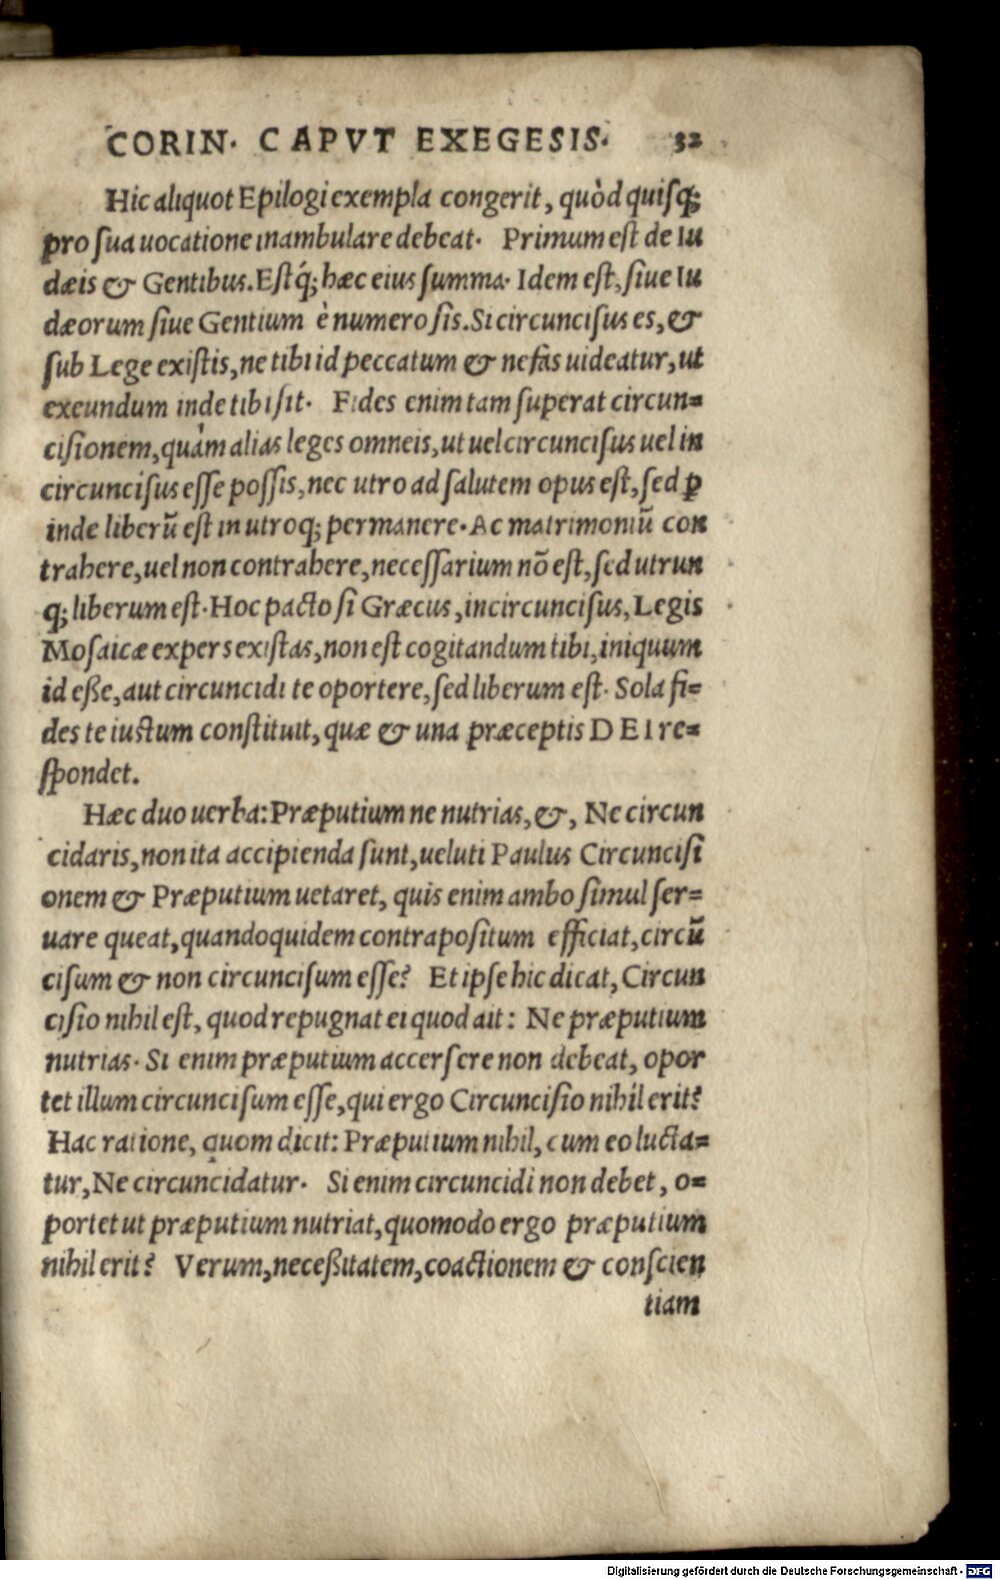 CORIN. CAPVT EXEGESIS. 32
Hic aliquot Epilogi exempla congerit, quòd quisq;
pro sua uocatione inambulare debeat. Primum est de Iu
dæis & Gentibus. Estq́; hæc eius summa. Idem est, siue Iu
dæorum siue Gentium è numero sis. Si circuncisus es, &
sub Lege existis, ne tibi id peccatum & nefas uideatur, ut
exeundum inde tibi sit. Fides enim tam superat circun=
cisionem, quàm alias leges omneis, ut uel circuncisus uel in
circuncisus esse possis, nec utro ad salutem opus est, sed ꝑ
inde liberũ est in utroq; permanere. Ac matrimoniũ con
trahere, uel non contrahere, necessarium nõ est, sed utrun
q; liberum est. Hoc pacto si Græcus, incircuncisus, Legis
Mosaicæ expers existas, non est cogitandum tibi, iniquum
id eße, aut circuncidi te oportere, sed liberum est. Sola fi=
des te iustum constituit, quæ & una præceptis DEI re=
spondet.
Hæc duo uerba: Præputium ne nutrias, &, Ne circun
cidaris, non ita accipienda sunt, ueluti Paulus Circuncisi
onem & Præputium uetaret, quis enim ambo simul ser=
uare queat, quandoquidem contrapositum efficiat, circũ
cisum & non circuncisum esse? Et ipse hic dicat, Circun
cisio nihil est, quod repugnat ei quod ait: Ne præputium
nutrias. Si enim præputium accersere non debeat, opor
tet illum circuncisum esse, qui ergo Circuncisio nihil erit?
Hac ratione, quom dicit: Præputium nihil, cum eo lucta=
tur, Ne circuncidatur. Si enim circuncidi non debet, o=
portet ut præputium nutriat, quomodo ergo præputium
nihil erit? Verum, neceßitatem, coactionem & conscien
tiam
Digitalisierung gefördert durch die Deutsche Forschungsgemeinschaft - DFG